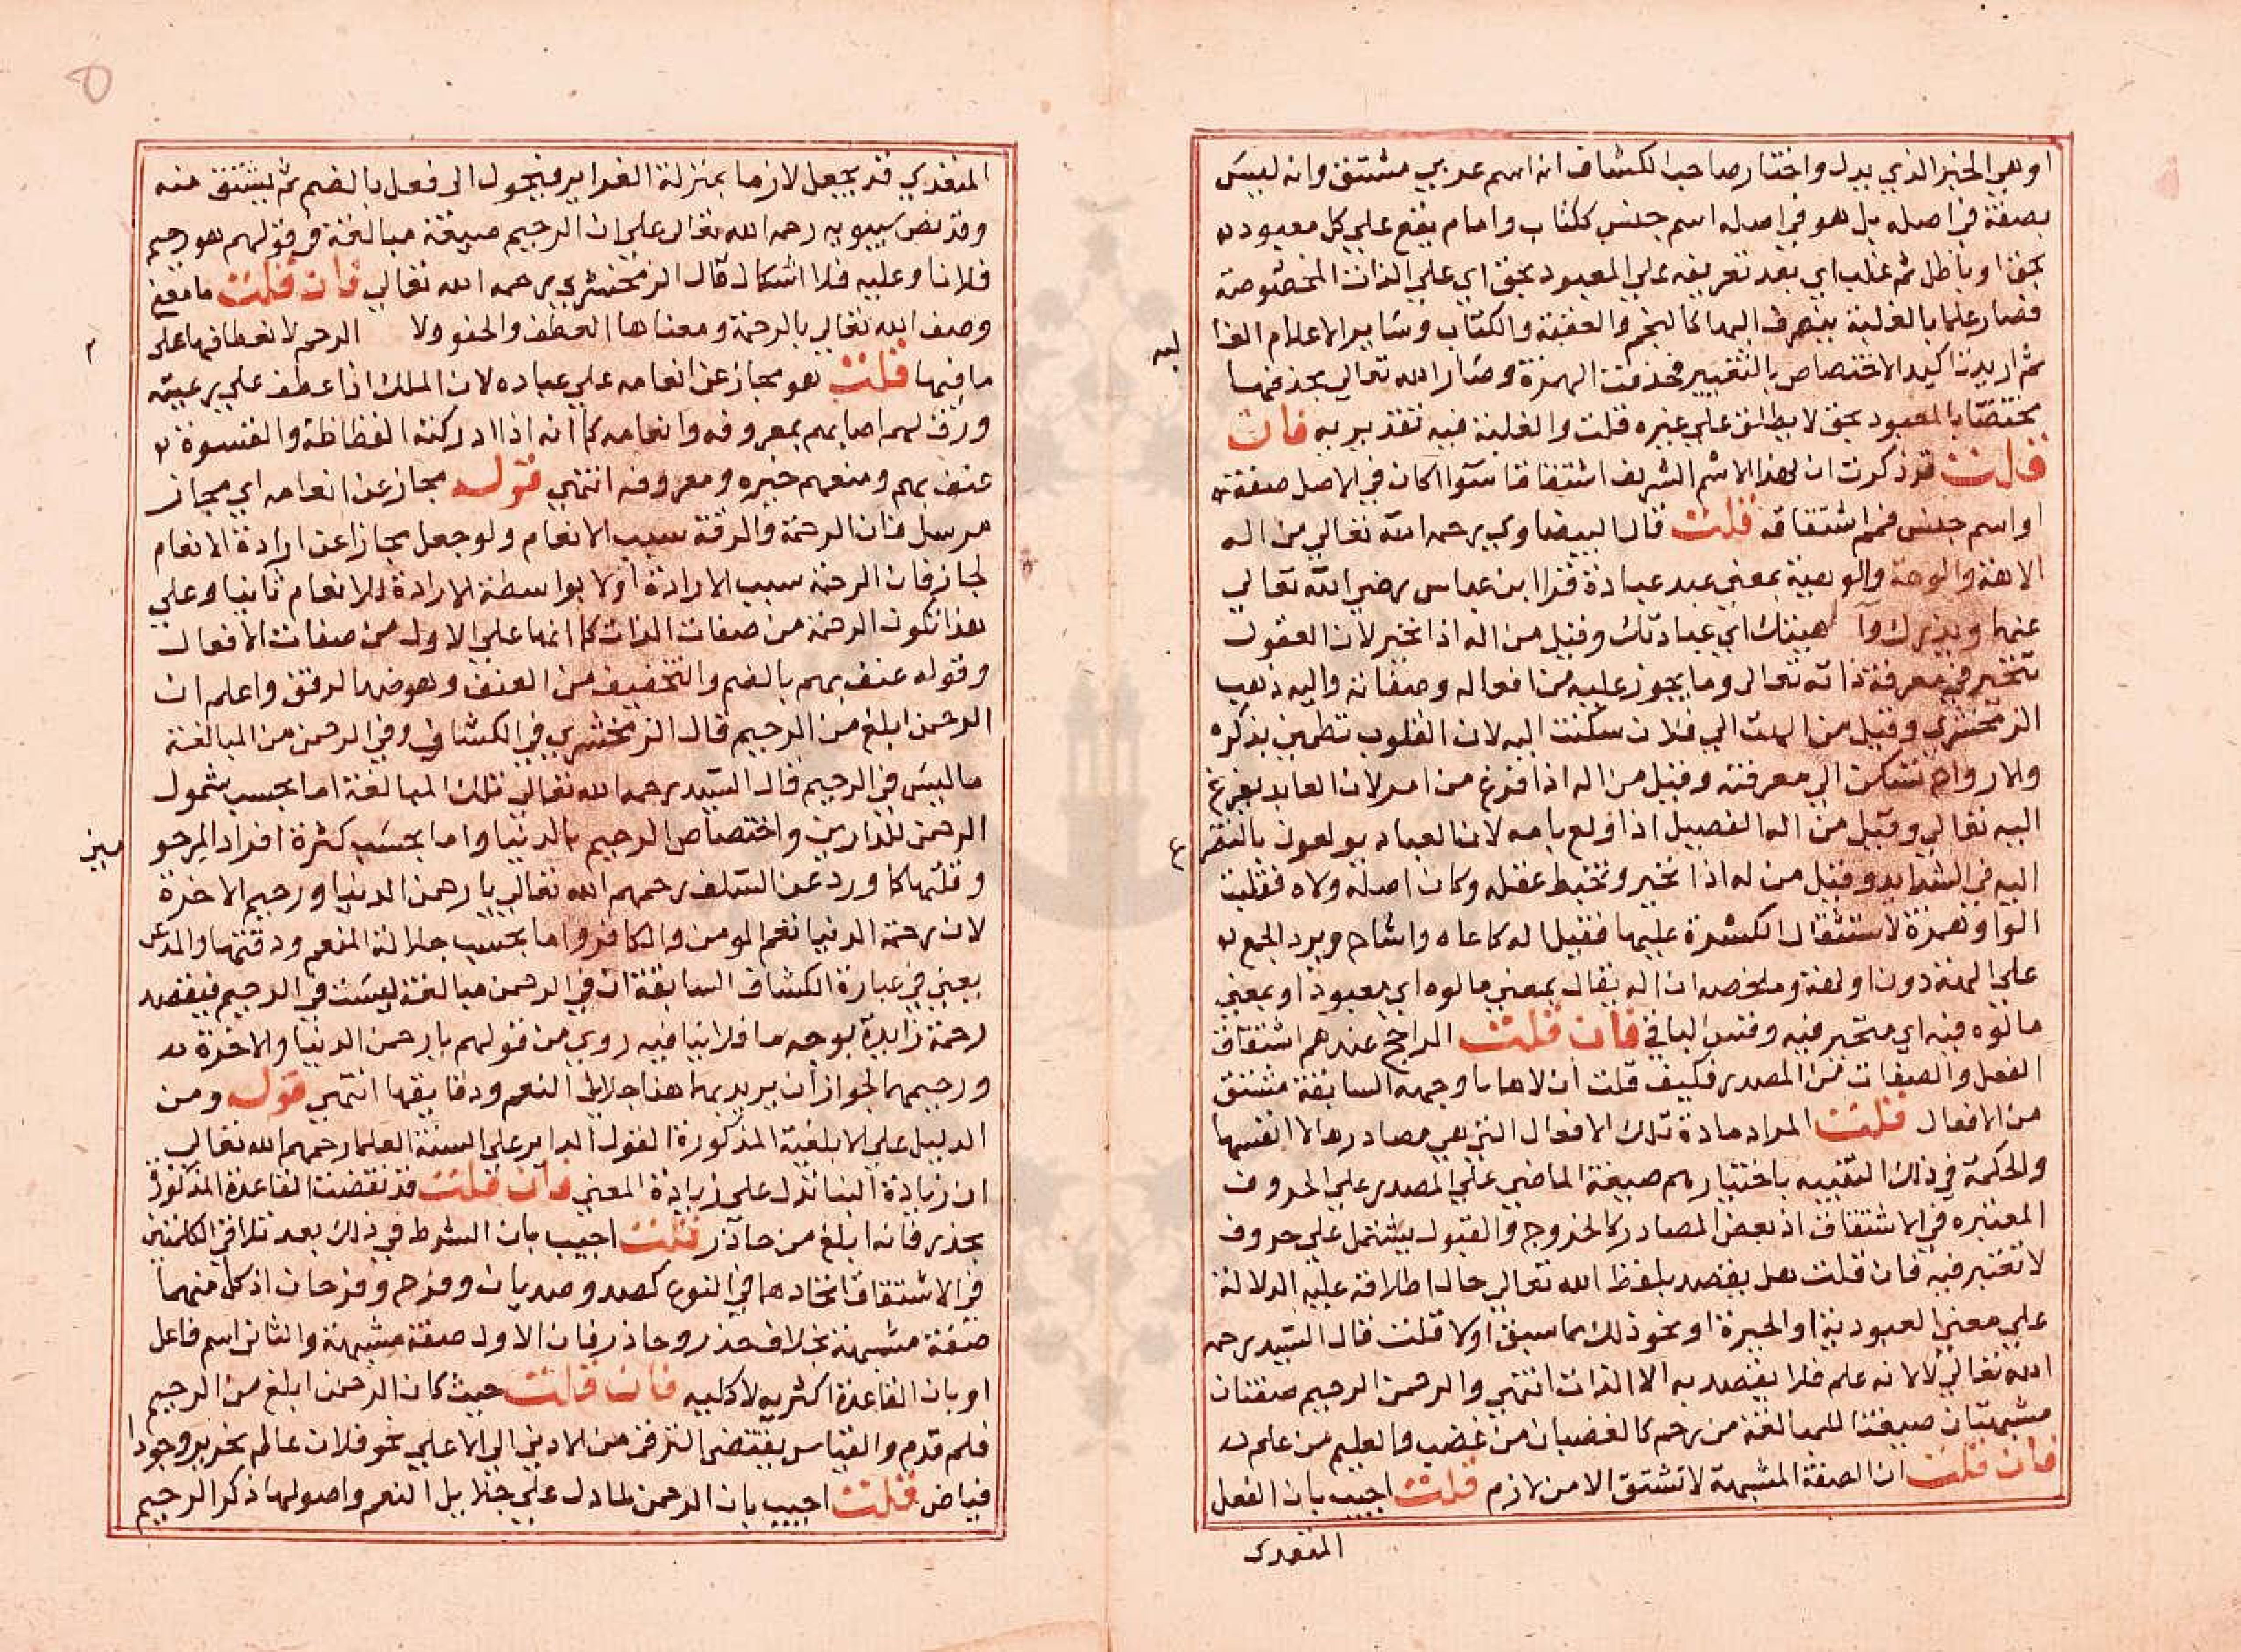 او هي الخبز الذي يدل واختار صاحب الكشاف انه اسم عربي مشتق وانه ليس
بصفة في اصله بل هو في اصله اسم جنس ككتاب وامام يقع علي كل معبود
بحق او باطل ثم غلب اي بعد تعريفه علي المعبود بحق اي علي الذات المخصوصة
فصار علما بالغلبة ينصرف اليها كالنجم والعقبة والكتاب وساير الاعلام الغا
لبه
ثم اريد تاكيد الاختصاص بالتغيير فحذفت الهمزة وصار الله تعالي بحذفها
مختصا بالمعبود بحق لا يطلق علي غيره قلت والغلبة فيه تقديريه فان
قلت قد ذكرت ان لهذا الاسم الشريف اشتقاقا سوا اكان في الاصل صفة
او اسم جنس فمم اشتقاقه قلت قال البيضاوي رحمه الله تعالي من اله
الاهة والوهة والوهية بمعني عبد عبادة قرا ابن عباس رضي الله تعالي
عنهما ويذرك وآ لهيتك اي عبادتك وقيل من اله اذا تحير لان العقول
تتحير في معرفة ذاته تعالي وما يجوز عليه من افعاله وصفاته واليه ذهب
الزمخشري وقيل من الهت الي فلان سكنت اليه لان القلوب تطمين بذكره
والارواح تسكن الي معرفته وقيل من اله اذا فزع من امر لان العابد يفزع
اليه تعالي وقيل من اله الفصيل اذا اولع بامه لان العباد يولعون بالتضر
ع
اليه في الشدايد وقيل من له اذا تحير وتخبط عقله وكان اصله ولاه فقلبت
الواو همزة لاستثقال الكسرة عليها فقيل اله كاعاه واشاح ويرد الجمع
علي الهة دون اولهة وملخصه ان اله يقال بمعني مالوه اي معبود او بمعني
مالوه فيه اي متحير فيه وقس الباقي فان قلت الراجح عندهم اشتقاق
الفعل والصفات من المصدر فكيف قلت ان لاها باوجهه السابقة مشتق
من الافعال قلت المراد مادة تلك الافعال التي هي مصادرها لا انفسها
والحكمة في ذلك التنبيه باختيارهم صيغة الماضي علي المصدر علي الحروف
المعتبره في الاشتقاق اذ بعض المصادر كالخروج والقبول يشتمل علي حروف
لا تعتبر فيه فان قلت هل يقصد بلفظ الله تعالي حال اطلاقه عليه الدلالة
علي معني العبودية او الحيرة او نحو ذلك مما سبق اولا قلت قال السيد رحمه
الله تعالي لا لانه علم فلا يقصد به الا الذات انتهي والرحمن الرحيم صفتان
مشبهتان صيغتا للمبالغة من رحم كالغضبان من غضب والعليم من علم
فان قلت ان الصفة المشبهة لا تشتق الا من لازم قلت اجيب بان الفعل
المتعدي
المتعدي قد يجعل لازما بمنزلة الغرايز فيحول الي فعل بالضم ثم يشتق منه
وقد نص سيبويه رحمه الله تعالي علي ان الرحيم صيغة مبالغة في قولهم هو رحيم
فلانا وعليه فلا اشكال قال الزمخشري رحمه الله تعالي فان قلت ما معني
وصف الله تعالي بالرحمة ومعناها العطف والحنو ولا الرحم لانعطافها علي
ما فيها قلت هو مجاز عن انعامه علي عباده لان الملك اذا عطف علي رعيته
ورق لهم اصابهم بمعروفه وانعامه كما انه اذا ادركته الفظاظة والقسوة
عنف بهم ومنعهم خيره ومعروفه انتهي قوله مجاز عن انعامه اي مجاز
مرسل فان الرحمة والرقة سبب الانعام ولو جعل مجازا عن ارادة الانعام
لجاز فان الرحمة سبب الارادة اولا بواسطة الارادة للانعام ثانيا وعلي
هذا تكون الرحمة من صفات الذات كما انها علي الاول من صفات الافعال
وقوله عنف بهم بالضم والتخفيف من العنف وهو ضد الرفق واعلم ان
الرحمن ابلغ من الرحيم قال الزمخشري في الكشاف وفي الرحمن من المبالغة
ما ليس في الرحيم قال السيد رحمه الله تعالي تلك المبالغة اما بحسب شمول
الرحمن للدارين واختصاص الرحيم بالدنيا واما بحسب كثرة افراد المرحو
مين
وقلتها كما ورد عن السلف رحمهم الله تعالي يا رحمن الدنيا ورحيم الاخرة
لان رحمة الدنيا تعم المومن والكافر واما بحسب جلالة المنعم ودقتها والمدعي
يعني في عبارة الكشاف السابقة ان في الرحمن مبالغة ليست في الرحيم فيقصد
رحمة زايدة بوجه ما فلا ينافيه روي من قولهم يا رحمن الدنيا والاخرة
ورحيمهما لجواز ان يريد بهما هنا جلايل النعم ودقايقها انتهي قوله ومن
الدليل علي الابلغية المذكورة القول الداير علي السنة العلما رحمهم الله تعالي
ان زيادة البنا تدل علي زيادة المعني فان قلت قد نقضت القاعدة المذكورة
بحذر فانه ابلغ من حاذر قلت اجيب بان الشرط في ذلك بعد تلاقي الكلمتين
في الاشتقاق اتحادهما في النوع كصد وصديان وفرح وفرحان اذ كل منهما
صفة مشبهة بخلاف حذر وحاذر فان الاول صفة مشبهة والثاني اسم فاعل
او بان القاعدة اكثريه لا كليه فان قلت حيث كان الرحمن ابلغ من الرحيم
فلم قدم والقياس يقتضي الترقي من الادني الي الاعلي نحو فلان عالم نحرير وجواد
فياض قلت اجيب بان الرحمن لما دل علي جلايل النعم واصولها ذكر الرحيم